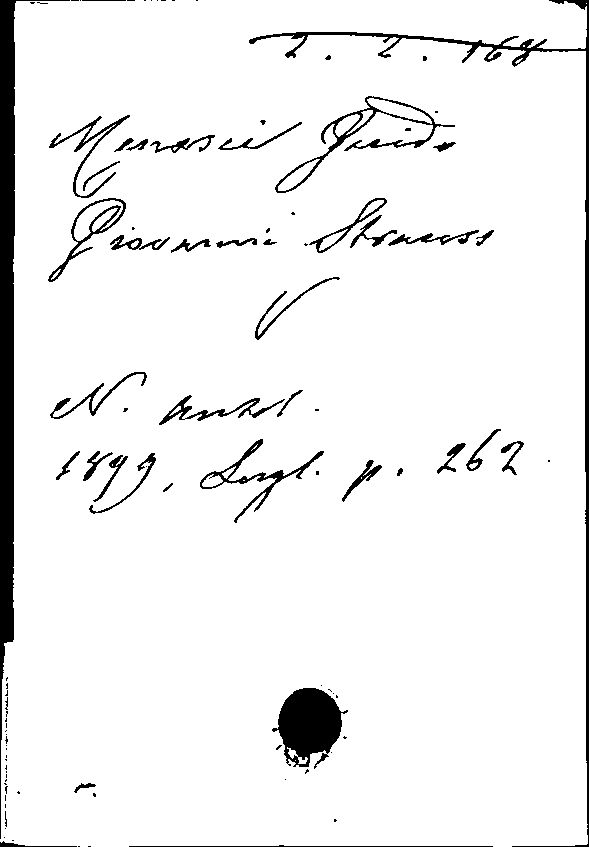 2. 2. 168
Menasci Guido
Giovanni Strauss
N. Antol.
1899, Lugl. p. 262